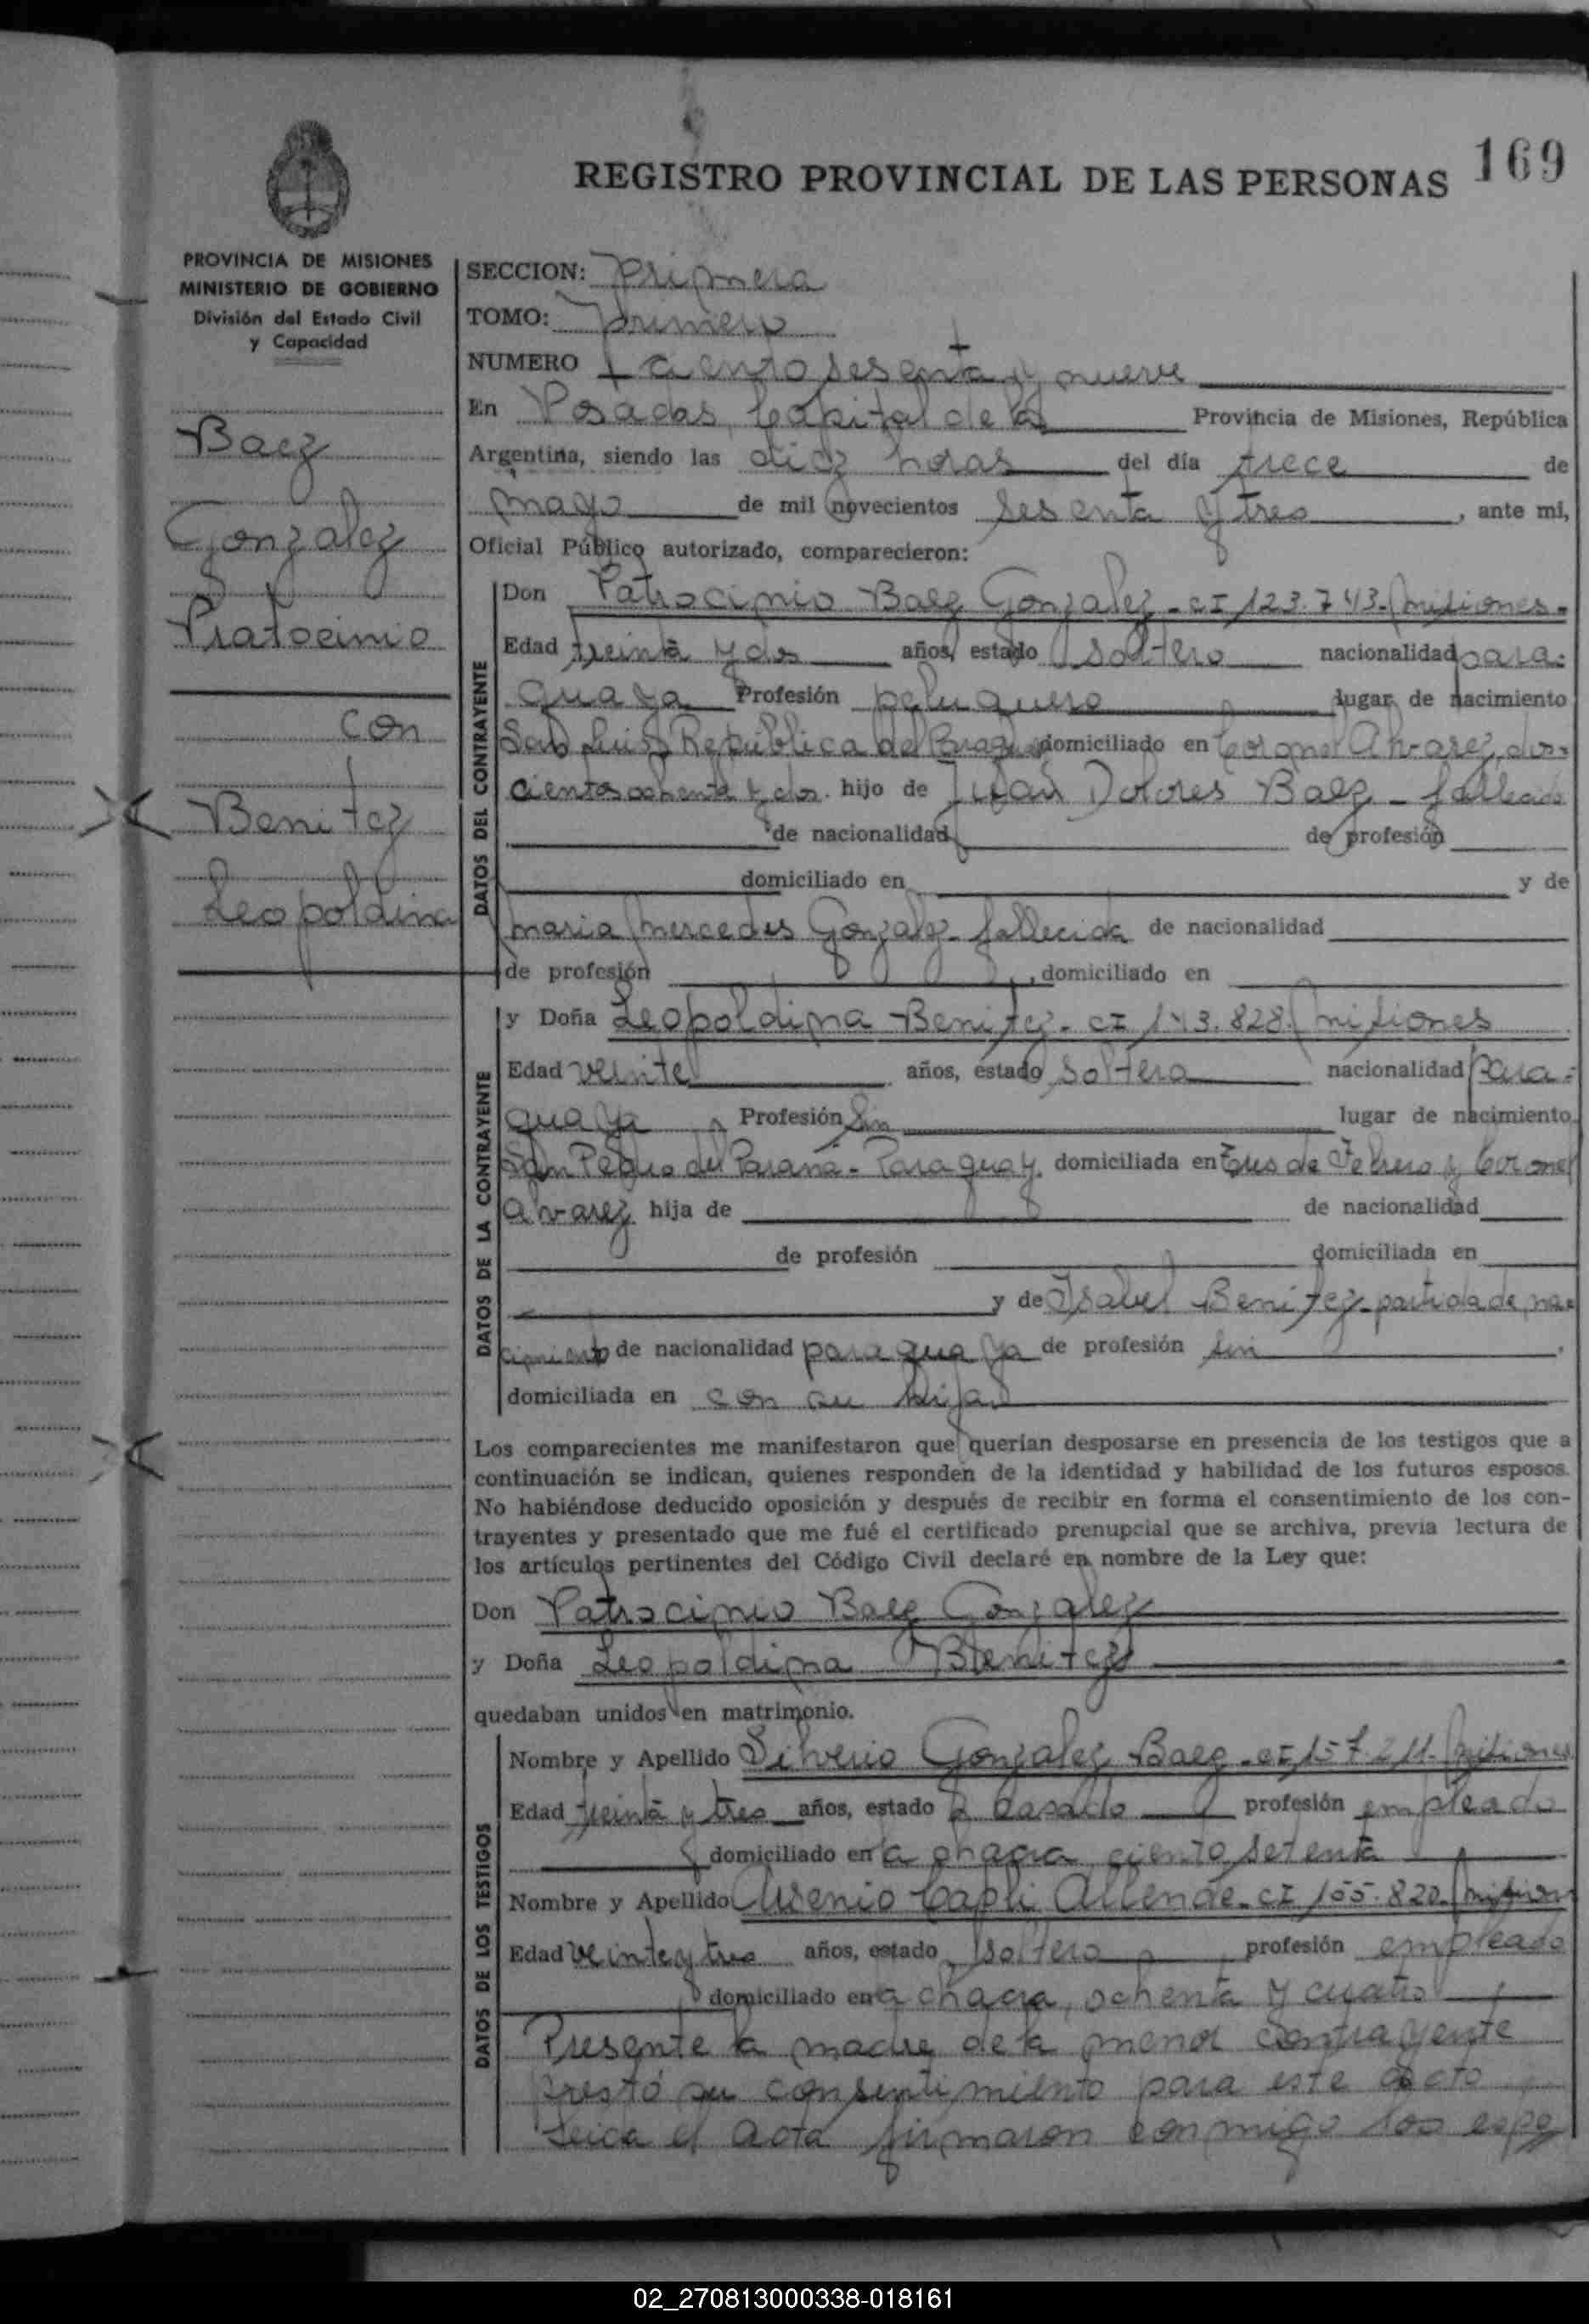 169
REGISTRO PROVINCIAL DE LAS PERSONAS
PROVINCIA DE MISIONES
MINISTERIO DE GOBIERNO
División del Estado Civil
y Capacidad
Baez
Gonzalez
Pratocinio
con
Benitez
Leopoldina
SECCION: Primera
TOMO: Primero
NUMERO ciento sesenta y nueve
En Posadas, Capital de la Provincia de Misiones, República
Argentina, siendo las diez horas del día trece de
mayo de mil novecientos sesenta y tres, ante mi,
Oficial Público autorizado, comparecieron:
DATOS DEL CONTRAYENTE
Don Patrocinio Baez Gonzalez - CI 123.743 - Misiones -
Edad treinta y dos años, estado soltero nacionalidad para-
guaya Profesión peluquero lugar de nacimiento
San Luis República del domiciliado en Coronel Alvarez dos-
cientos ochenta y dos. hijo de Julán Dolores Baez - fallecido
de nacionalidad de profesión
domiciliado en y de
Maria Mercedes Gonzalez - fallecida de nacionalidad
de profesión , domiciliado en
DATOS DE LA CONTRAYENTE
y Doña Leopoldina Benitez - CI 143.828 Misiones
Edad veinte años, estado soltera nacionalidad para-
guaya Profesión sin lugar de nacimiento
San Pedro del Paraná - Paraguay. domiciliada en Tres de Febrero y Coronel
Alvarez hija de de nacionalidad
de profesión domiciliada en
y de Isabel Benitez - partida de na-
cimiento de nacionalidad paraguaya de profesión sin
domiciliada en con su hija
Los comparecientes me manifestaron que querían desposarse en presencia de los testigos que a
continuación se indican, quienes responden de la identidad y habilidad de los futuros esposos.
No habiéndose deducido oposición y después de recibir en forma el consentimiento de los con-
trayentes y presentado que me fué el certificado prenupcial que se archiva, previa lectura de
los artículos pertinentes del Código Civil declaré en nombre de la Ley que:
Don Patrocinio Baez Gonzalez
y Doña Leopoldina Benitez
quedaban unidos en matrimonio.
DATOS DE LOS TESTIGOS
Nombre y Apellido Silverio Gonzalez Baez - CI 157.211 - Misiones
Edad treinta y tres años, estado casado profesión empleado
domiciliado en a chacra ciento setenta
Nombre y Apellido Arsenio Capli Allende - CI 155.820 -
Edad veinte y tres años, estado soltero profesión empleado
domiciliado en a chacra, ochenta y cuatro
Presente la madre de la menor contrayente
prestó su consentimiento para este acto
Leida el acta firmaron conmigo los espo
02_270813000338-018161